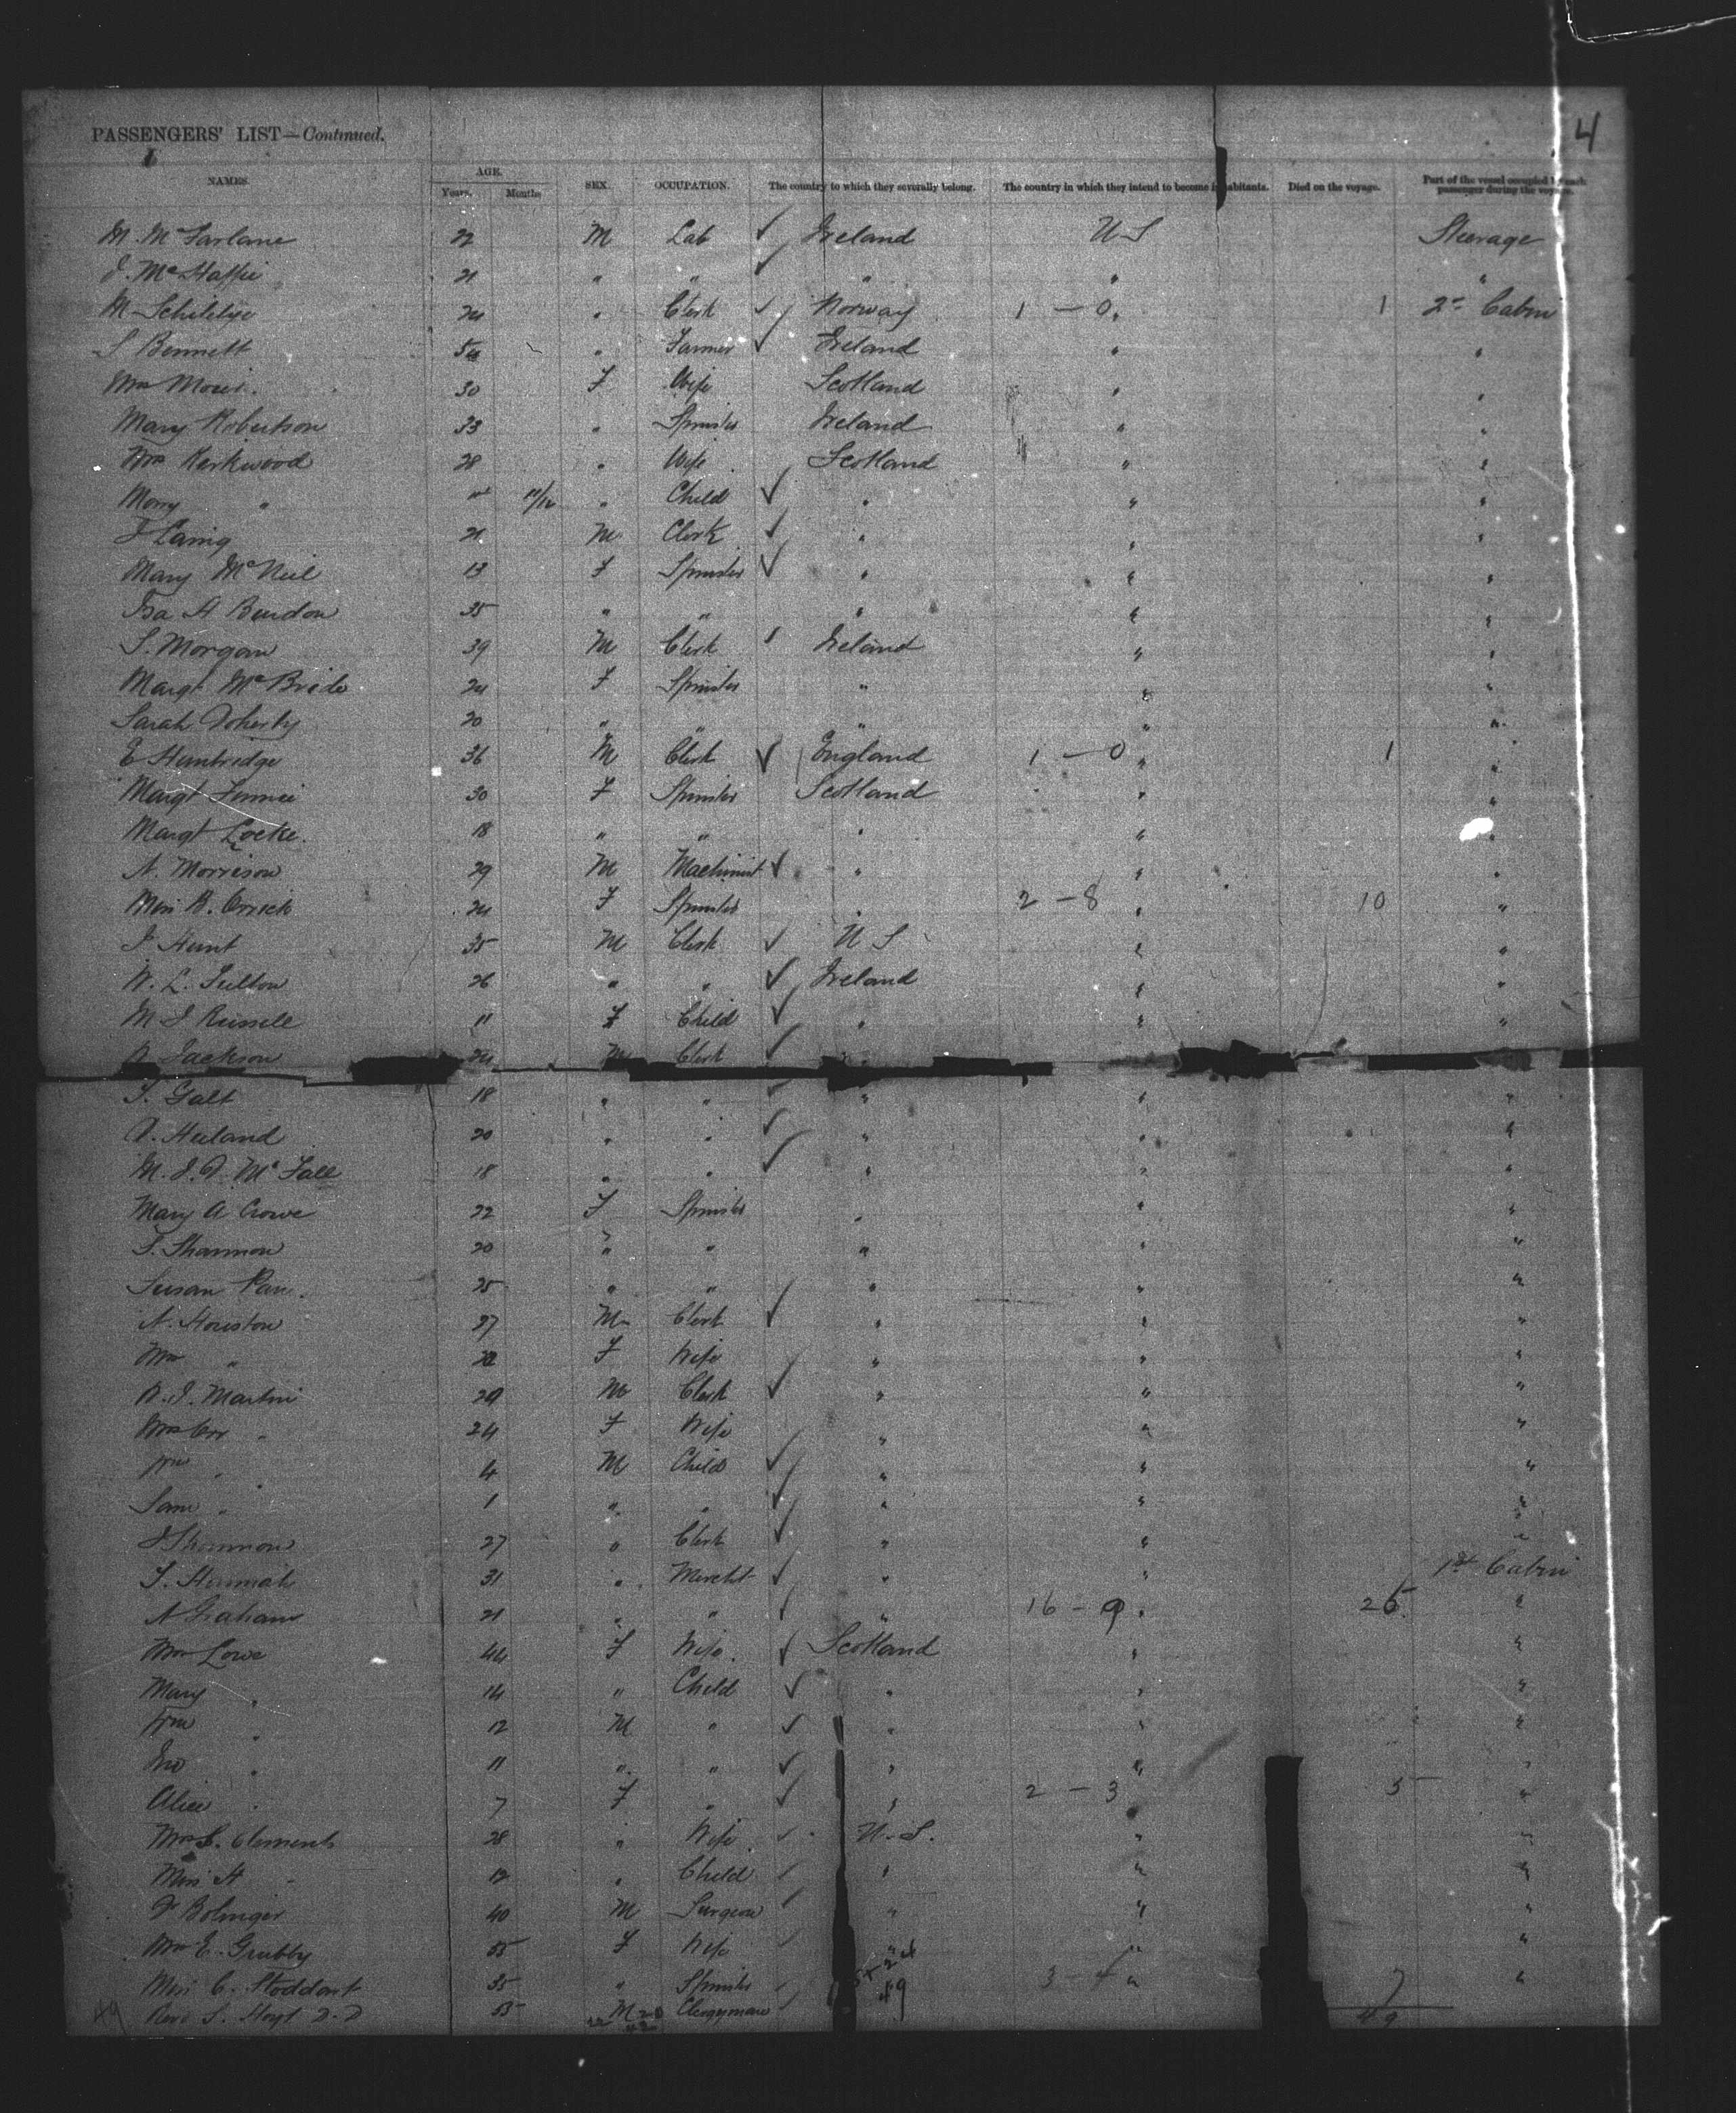 4
PASSENGERS' LIST—Continued.
NAMES. AGE. Years. Months SEX. OCCUPATION. The country to which they severally belong. The country in which they intend to become inhabitants. Died on the voyage. Part of the vessel occupied by each passenger during the voyage.
M. McFarlane 22 M Lab ✓ Ireland U S Steerage
J. McHaffie 21 " " ✓ " " "
M 24 " Clerk ✓ Norway 1 — 0 " 1 2nd Cabin
S Bennett 54 " Farmer ✓ Ireland " "
Mrs 30 F Wife Scotland " "
Mary Robertson 33 " Spinster Ireland " "
Mrs Kirkwood 28 " Wife Scotland " "
" " Child ✓ " " "
J Laing 21 M Clerk ✓ " " "
Mary McNeil 13 F Spinster ✓ " " "
Isa H 35 " " " " "
S. Morgan 39 M Clerk ✓ Ireland " "
Margt McBride 24 F Spinster " " "
Sarah Doherty 20 " " " " "
E Hambridge 36 M Clerk ✓ England 1 — 0 " 1 "
Margt 30 F Spinster Scotland " "
Margt Locke. 18 " " " " "
N. Morrison 29 M Machinist ✓ " " "
Miss B. Orrick 24 F Spinster " 2 — 8 " 10 "
J Hunt 35 M Clerk ✓ U S " "
W. L. Fulton 26 " " ✓ Ireland " "
M J Russell 11 F Child ✓ " " "
Jackson 24 M Clerk ✓ "
S. Galt 18 " " ✓ " " "
20 " " ✓ " " "
M. J. McFall 18 " " ✓ " " "
Mary A Crowe 22 F Spinster " " "
S. Shannon 20 " " " " "
Susan 25 " " " " "
N. Houston 27 M Clerk ✓ " " "
Mrs " F Wife " " "
R. J. Martin 29 M Clerk ✓ " " "
Mrs Orr " 24 F Wife " " "
Wm " 4 M Child ✓ " " "
Sam " 1 " " ✓ " " "
J Shannon 27 " Clerk ✓ " " "
S. Hannah 31 " Mercht ✓ " " 1st Cabin
N Graham 21 " " ✓ " 16 — 9 " 25 "
Mrs Lowe 44 F Wife. ✓ Scotland " "
Mary " 14 " Child ✓ " " "
Wm " 12 M " ✓ " " "
Jno " 11 " " ✓ " " "
Alice " 7 F " ✓ " 2 — 3 " 5 "
Mrs S. Clements 28 " Wife ✓ U. S. " "
Miss H " 12 " Child ✓ " " "
Bolinger 40 M Surgeon ✓ " " "
Mrs E. Grubby 55 F Wife ✓ " " "
Miss C. Stoddart 35 " Spinster ✓ 49 3 — 4 " 7 "
49 Revd S. Hoyt D. D 53 M Clergyman ✓ 49